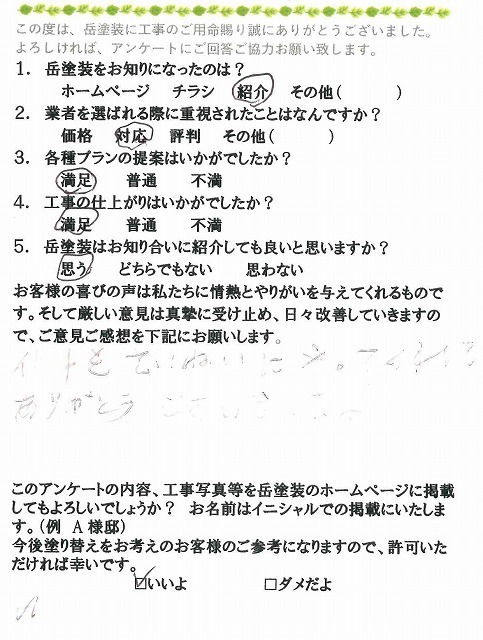 この度は、岳塗装に工事のご用命賜り誠にありがとうございました。
よろしければ、アンケートにご回答ご協力お願い致します。
1. 岳塗装をお知りになったのは？
ホームページ チラシ 紹介 その他( )
2. 業者を選ばれる際に重視されたことはなんですか？
価格 対応 評判 その他( )
3. 各種プランの提案はいかがでしたか？
満足 普通 不満
4. 工事の仕上がりはいかがでしたか？
満足 普通 不満
5. 岳塗装はお知り合いに紹介しても良いと思いますか？
思う どちらでもない 思わない
お客様の喜びの声は私たちに情熱とやりがいを与えてくれるもので
す。そして厳しい意見は真摯に受け止め、日々改善していきますの
で、ご意見ご感想を下記にお願いします。
ていねいに
ありがとう ござい
このアンケートの内容、工事写真等を岳塗装のホームページに掲載
してもよろしいでしょうか？ お名前はイニシャルでの掲載にいたしま
す。(例 A 様邸)
今後塗り替えをお考えのお客様のご参考になりますので、許可いた
だければ幸いです。
☑いいよ □ダメだよ